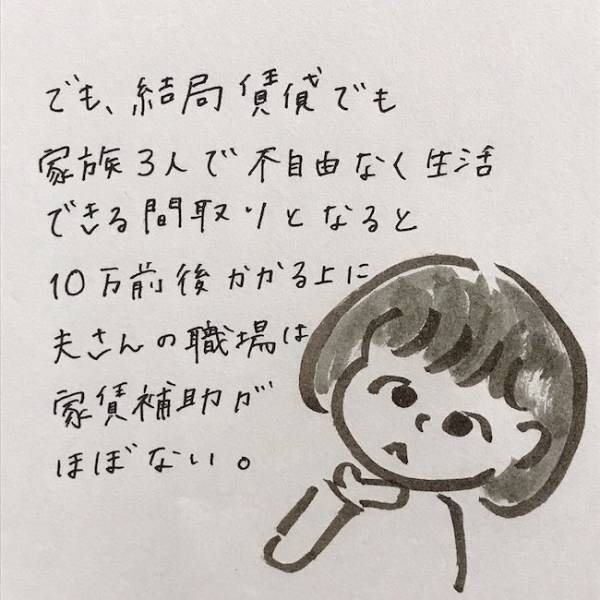 でも、結局賃貸でも
家族3人で不自由なく生活
できる間取りとなると
10万前後かかる上に
夫さんの職場は
家賃補助が
ほぼない。